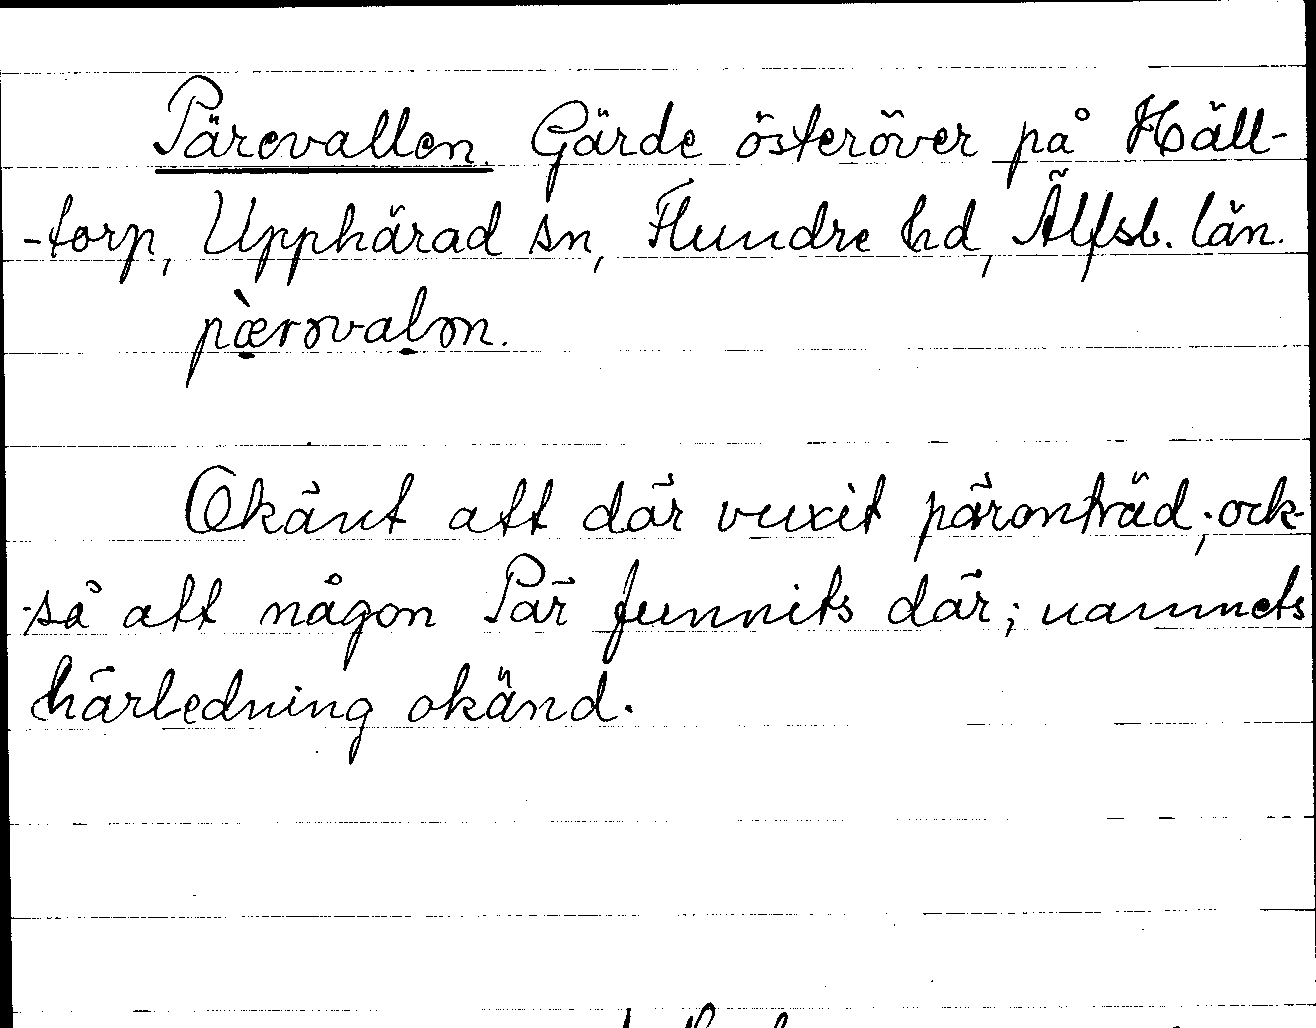 Pärevallen. Gärde österöver på Häll-
-torp, Upphärad sn, Flundre hd, Älfsb. län.
pæ̀rəvaḷən.
Okänt att där vuxit päronträd; ock-
-så att någon Pär funnits där; namnets
härledning okänd.